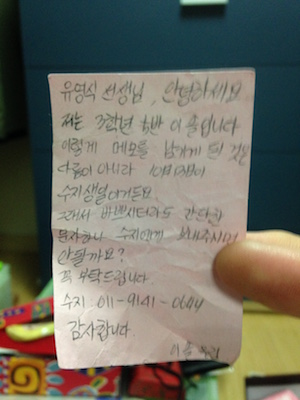 유영식 선생님, 안녕하세요
저는 3학년 1반 이 솔입니다
이렇게 메모를 남기게 된 것은
다름이 아니라 10月08日이
수지생일이거든요.
그래서 바쁘시더라도 간단한
문자하나 수지에게 보내주시면
안될까요?
꼭 부탁드립니다
수지: 011-9141-0644
감사합니다.
이솔 올림